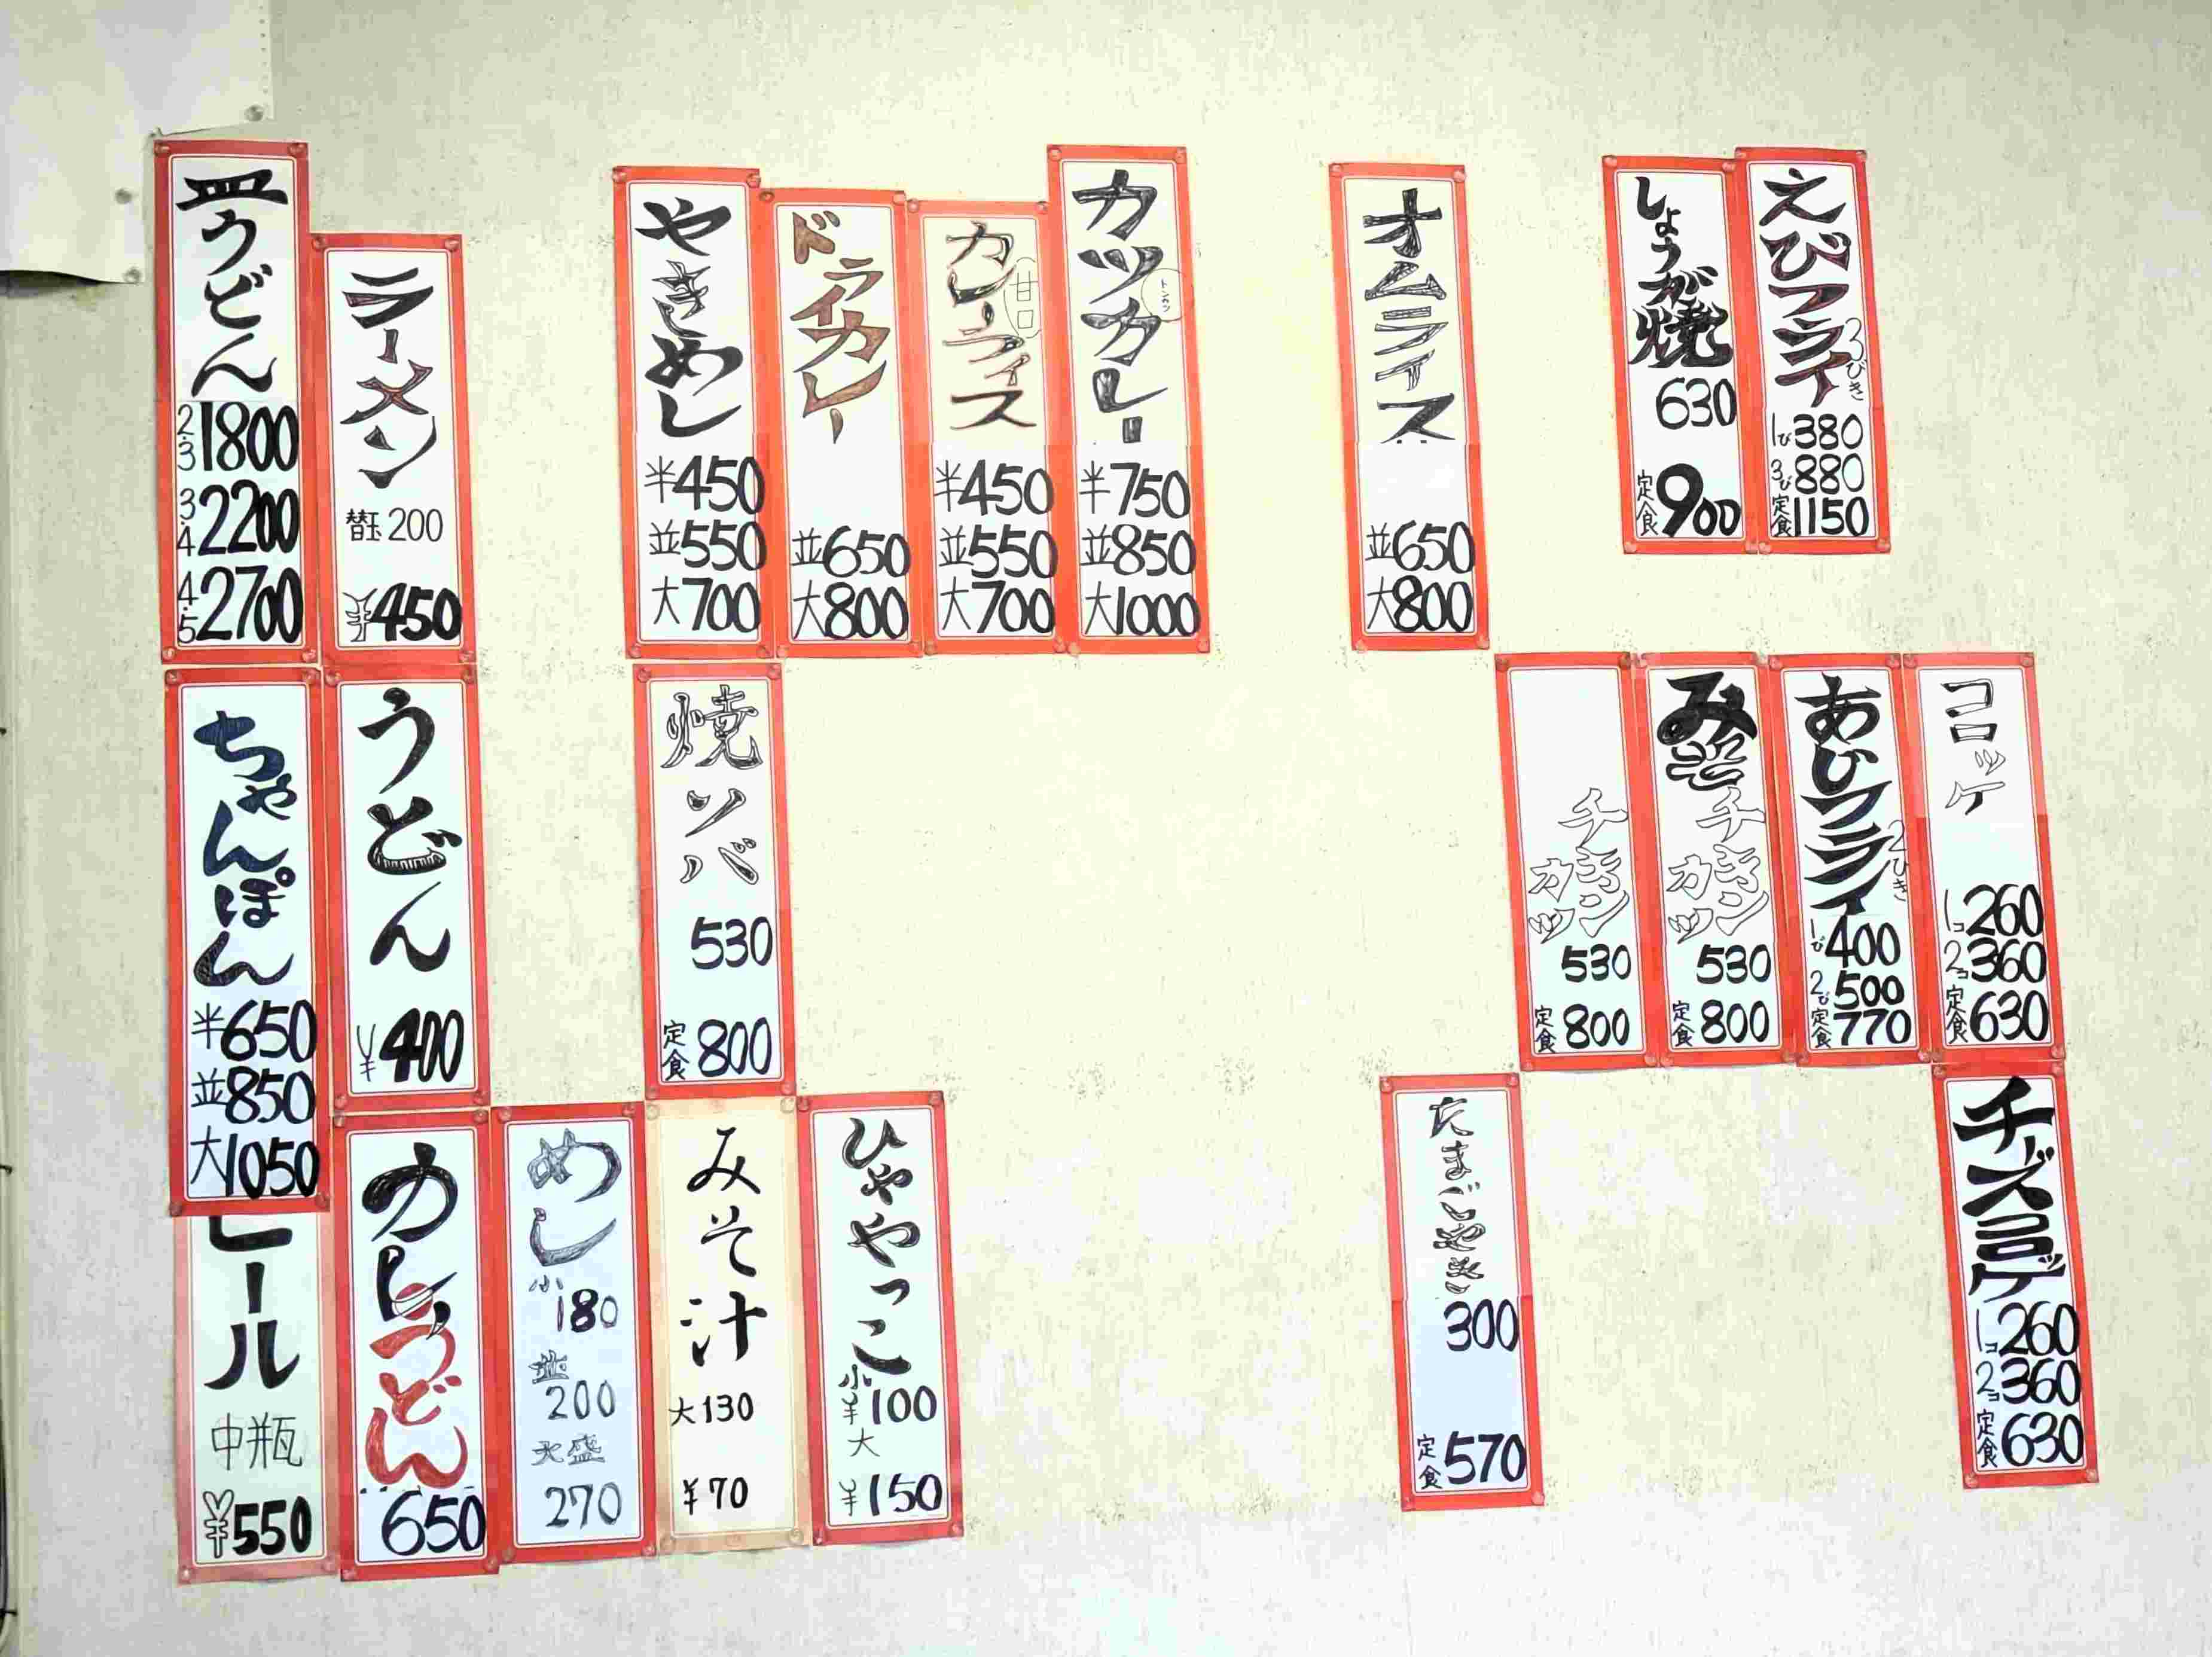 皿うどん
2.3 1800
3.4 2200
4.5 2700
ラーメン
替玉 200
¥450
やきめし
半450
並550
大700
ドライカレー
並650
大800
カレーライス
甘口
半450
並550
大700
カツカレー
トンカツ
半750
並850
大1000
オムライス
並650
大800
しょうが焼
630
定食900
えびフライ
3びき
1び380
3び880
定食1150
ちゃんぽん
半650
並850
大1050
うどん
¥400
焼ソバ
530
定食800
チキンカツ
530
定食800
みそチキンカツ
530
定食800
あじフライ
2ひき
1び400
2び500
定食770
コロッケ
1コ260
2コ360
定食630
ビール
中瓶
¥550
カレーうどん
650
めし
小
180
並
200
大盛
270
みそ汁
大130
¥70
ひややっこ
小
¥100
大
¥150
たまごやき
300
定食570
チーズコロッケ
1コ260
2コ360
定食630